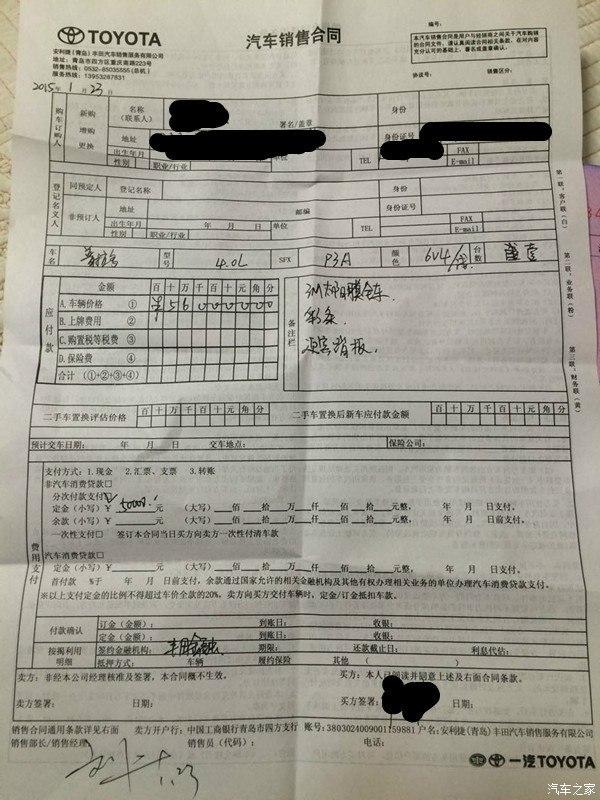 TOYOTA
汽车销售合同
编号:
安利捷(青岛)丰田汽车销售服务有限公司
地址:青岛市四方区重庆南路223号
销售热线:0532-85035555(总机)
服务热线:13953287831
本汽车销售合同是用户与经销商之间关于汽车购销
的合同文件。请认真阅读合同相关条款,在对内容
充分认可的基础上,署名或盖章确认。
协议号: 销售区分:
2015年 1月 23日
购车订购人 新购 增购 更换
名称(联系人) 署名/盖章 身份
地址 身份证号
出生年月 单位 TEL FAX
性别 职业/行业 E-mail
登记名义人 同预定人 非预订人
登记名称 身份
地址 邮编 身份证号
出生年月 年 月 日 单位 TEL FAX
性别 职业/行业 E-mail
车名 普拉多 型号 4.0L SFX P3A 颜色 6V4/ 台数 壹
应付款 金额 百 十 万 千 百 十 元 角 分
A.车辆价格 ① ¥ 5 6 0 0 0 0 0 0
B.上牌费用 ②
C.购置税等税费 ③
D.保险费 ④
合计(①+②+③+④)
备注栏
3M 膜全车.
彩条.
迎宾踏板.
第一联:客户联(白)
第二联:业务联(粉)
第三联:财务联(黄)
二手车置换评估价格 百 十 万 千 百 十 元 角 分 二手车置换后新车应付款金额 百 十 万 千 百 十 元 角 分
预计交车日期: 年 月 日 交车地点: 保险公司:
费用支付
支付方式:1.现金 2.汇票、支票 3.转账
非汽车消费贷款□
分次付款支付☑
定金(小写)¥ 50000. 元 (大写) 佰 拾 万 仟 佰 拾 元整, 年 月 日支付。
余款(小写)¥ 元 (大写) 佰 拾 万 仟 佰 拾 元整, 年 月 日前支付。
一次性支付□ 签订本合同当日买方向卖方一次性付清车款
汽车消费贷款□
定金(小写)¥ 元 (大写) 佰 拾 万 仟 佰 拾 元整, 年 月 日支付。
首付款 %于 年 月 日前支付,余款通过国家允许的相关金融机构及其他有权办理相关业务的单位办理汽车消费贷款支付。
※以上支付定金的比例不得超过车价全款的20%,卖方向买方交付车辆时,定金/订金抵扣车款。
付款确认 订金(金额): 到账日: 收银:
定金(金额): 到账日: 收银:
按揭利用明细 签约金融机构: 丰田金融 期限: 还款截止日: 利息代估:
抵押方式: 车辆 履约保险 其他 ( )
卖方:非经本公司经理核准及签署,本合同概不生效。 买方:本人已阅读并同意上述及右面合同条款。
卖方签署: 日期: 买方签署: 日期:
销售合同通用条款详见右面 卖方开户行:中国工商银行青岛市四方支行 账号:3803024009001159881 户名:安利捷(青岛)丰田汽车销售服务有限公司
销售部长/销售经理 销售员(代码): 电话:
1.23
一汽TOYOTA
汽车之家